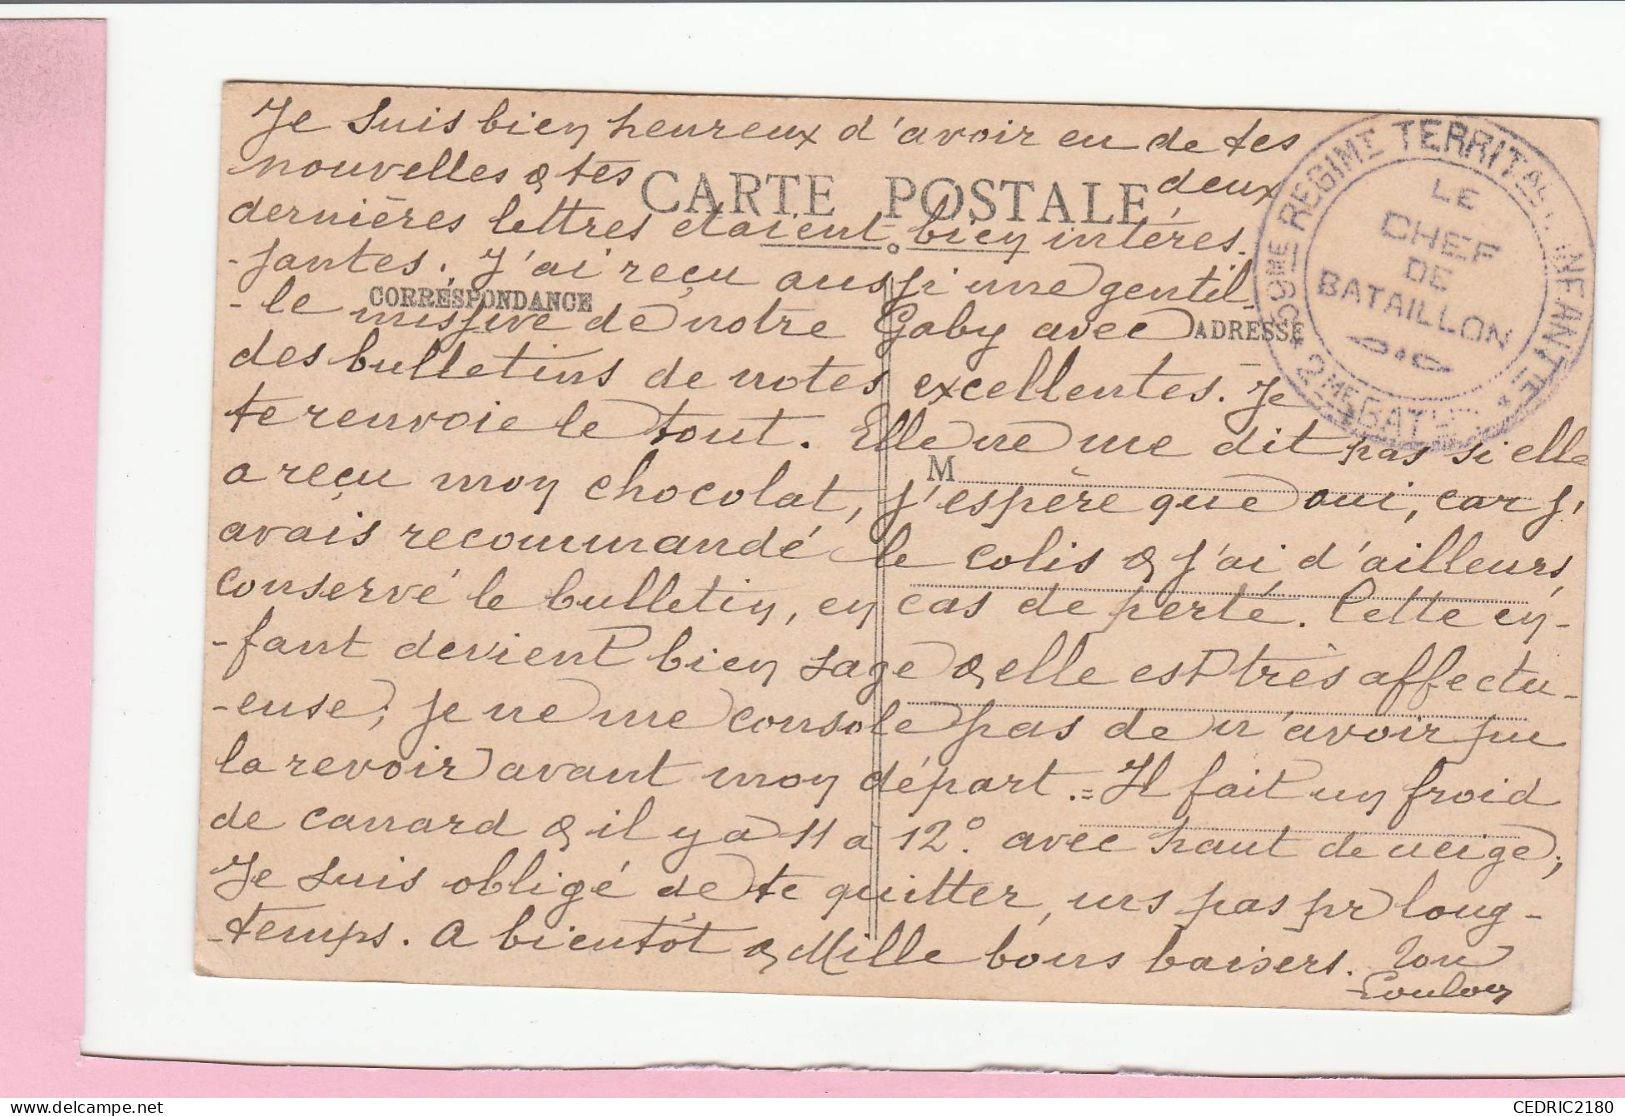 Je suis bien heureux d'avoir eu de tes
nouvelles & tes deux
CARTE POSTALE
dernières lettres étaient bien intéres-
-santes. J'ai reçu aussi une gentil-
CORRESPONDANCE
-le missive de notre Gaby avec
ADRESSE
des bulletins de notes excellentes. Je
te renvoie le tout. Elle ne me dit pas si elle
M
a reçu mon chocolat, j'espère que oui, car j'
avais recommandé le colis & j'ai d'ailleurs
conservé le bulletin, en cas de perte. Cette en-
-fant devient bien sage & elle est très affectu-
-euse; je ne me console pas de n'avoir pu
la revoir avant mon départ. = Il fait un froid
de canard & il y a 11 à 12°. avec haut de neige;
Je suis obligé de te quitter, mrs pas pr long-
-temps. A bientôt & Mille bons baisers. Ton
Loulou
99ME REGIME TERRITAL INFANTIE
* 2ME BATON *
LE
CHEF
DE
BATAILLON
CEDRIC2180